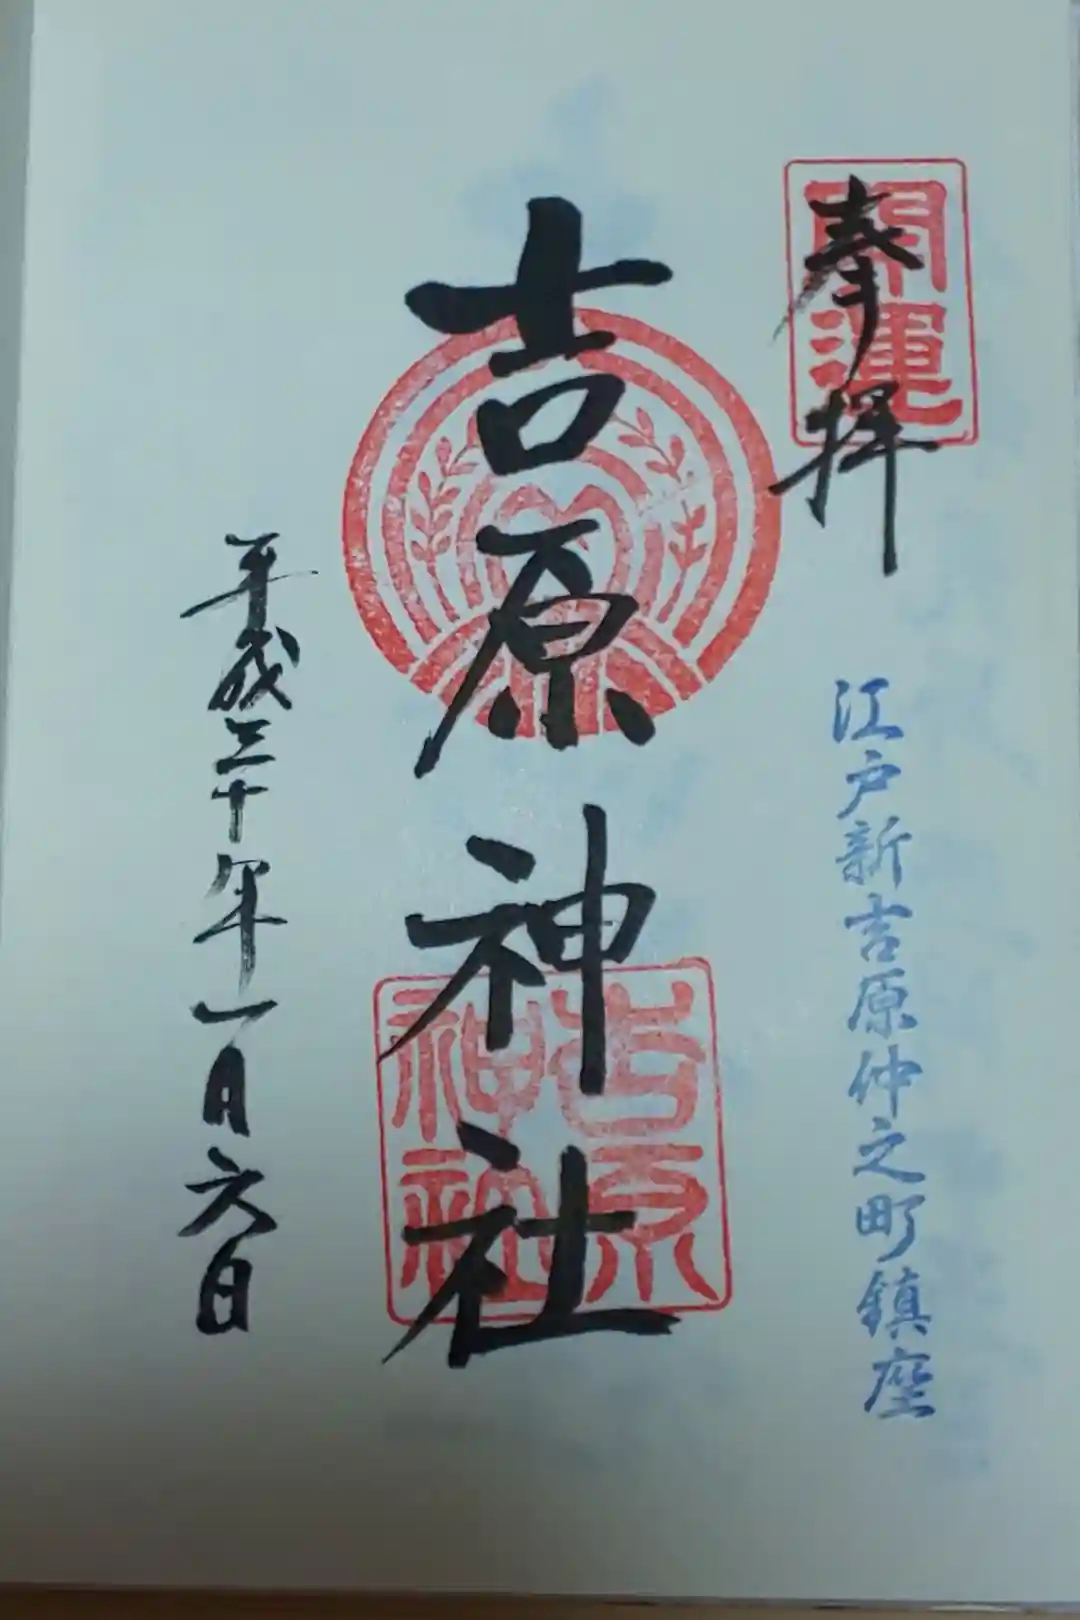 開運
奉拝
江戸新吉原仲之町鎮座
吉原神社
吉原
神社
平成三十年一月六日